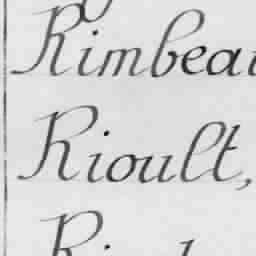 Rimbeau
Rioult,